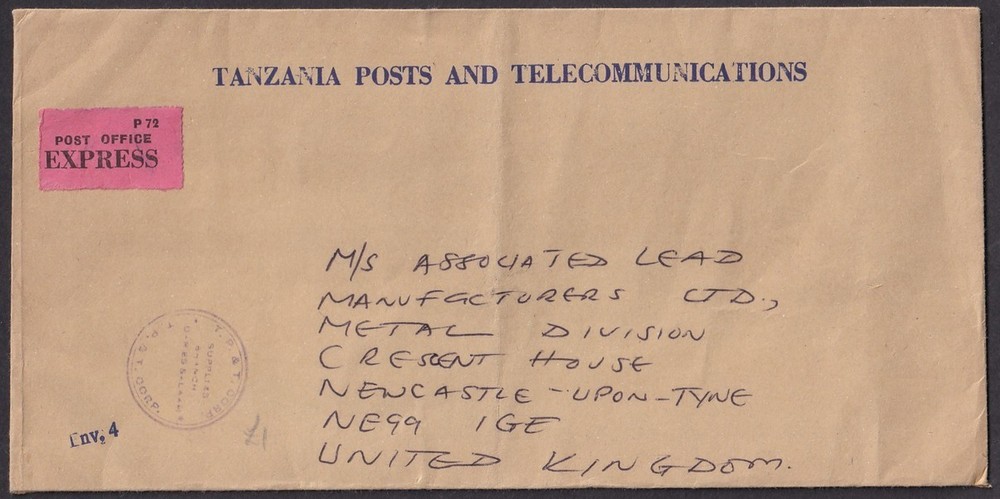 TANZANIA POSTS AND TELECOMMUNICATIONS
P 72
POST OFFICE
EXPRESS
M/S ASSOCIATED LEAD
MANUFACTURERS LTD.,
METAL DIVISION
CRESCENT HOUSE
NEWCASTLE-UPON-TYNE
NE99 1GE
UNITED KINGDOM.
T. P. & T. CORP.
SUPPLIES
BRANCH
DAR ES SALAAM
T. P. & T. CORP.
Env. 4